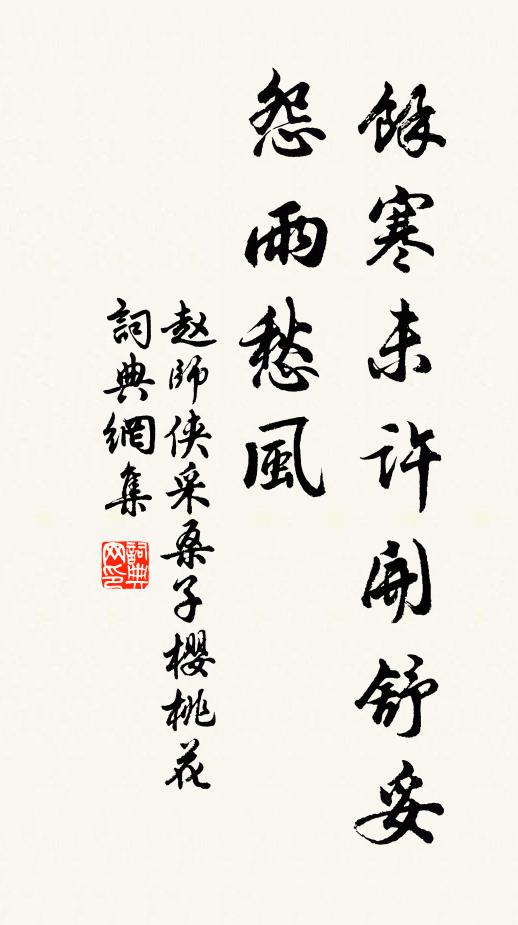 餘寒未許開舒妥
怨雨愁風
赵師侠采桑子櫻桃花
詞典網集
詞典
网印